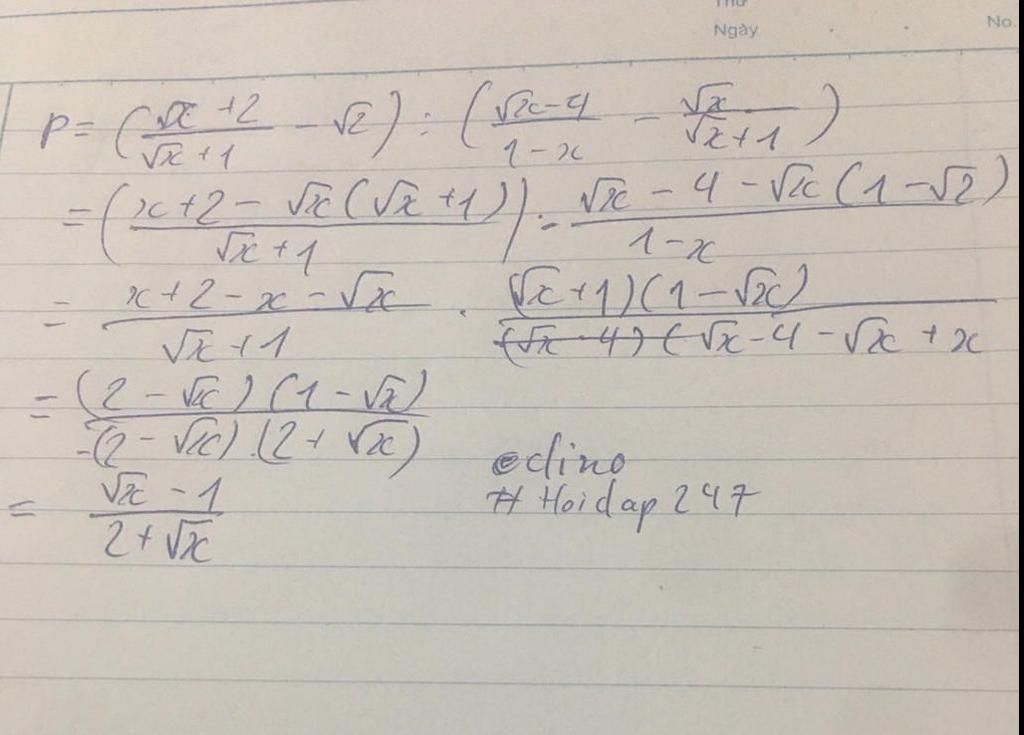 Thứ
Ngày
No.
P = (\frac{\sqrt{x}+2}{\sqrt{x}+1} - \sqrt{2}) : (\frac{\sqrt{x}-4}{1-x} - \frac{\sqrt{x}}{\sqrt{x}+1})
= (\frac{x+2-\sqrt{x}(\sqrt{x}+1)}{\sqrt{x}+1}) : \frac{\sqrt{x}-4-\sqrt{x}(1-\sqrt{2})}{1-x}
= \frac{x+2-x-\sqrt{x}}{\sqrt{x}+1} \cdot \frac{(\sqrt{x}+1)(1-\sqrt{x})}{\sqrt{x}-4-\sqrt{x}+x}
= \frac{(2-\sqrt{x})(1-\sqrt{x})}{-(2-\sqrt{x}).(2+\sqrt{x})}
= \frac{\sqrt{x}-1}{2+\sqrt{x}}
# Hoidap247